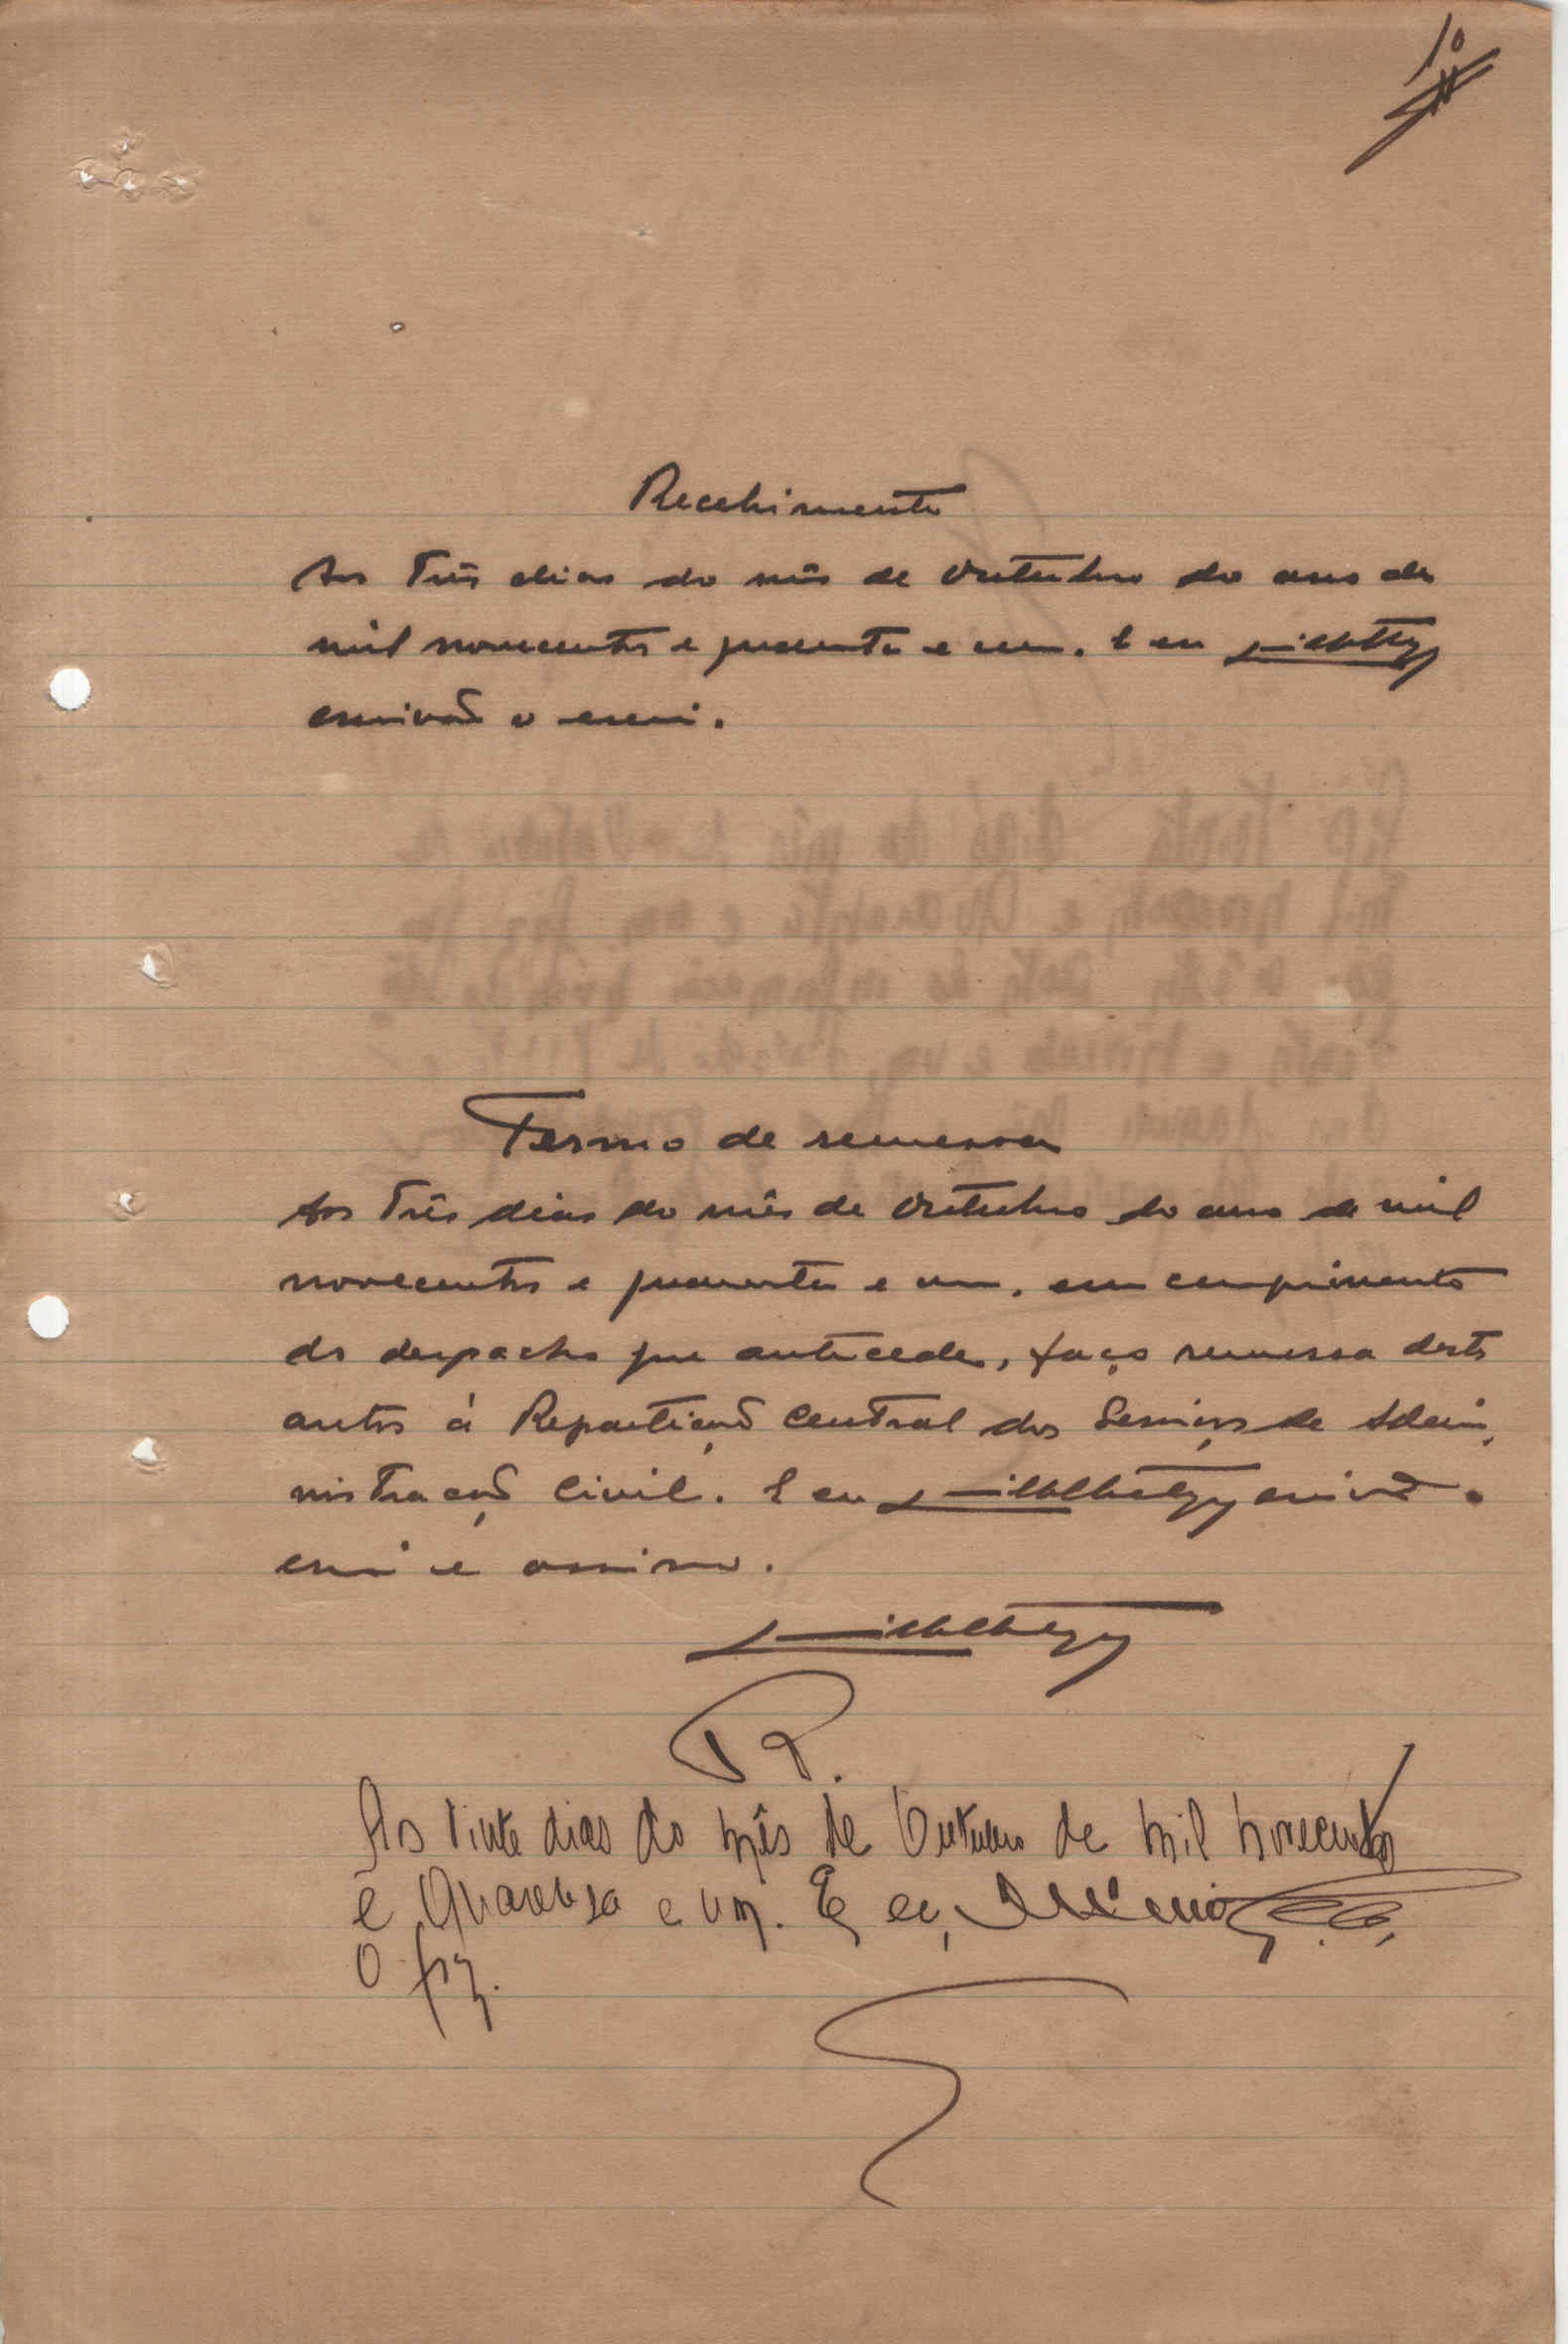 10
Recebimento
Aos três dias do mês de Outubro do ano de
mil novecentos e quarenta e um. E eu
escrivão o escrevi.
Termo de remessa
Aos três dias do mês de Outubro do ano de mil
novecentos e quarenta e um, em cumprimento
do despacho que antecede, faço remessa destes
autos á Repartição Central dos Serviços de Admi
nistração Civil. E eu escrivão o
escrevi e assino.
R.
Aos vinte dias do mês de Outubro de mil novecentos
e Quarenta e um. E eu,
o fiz.